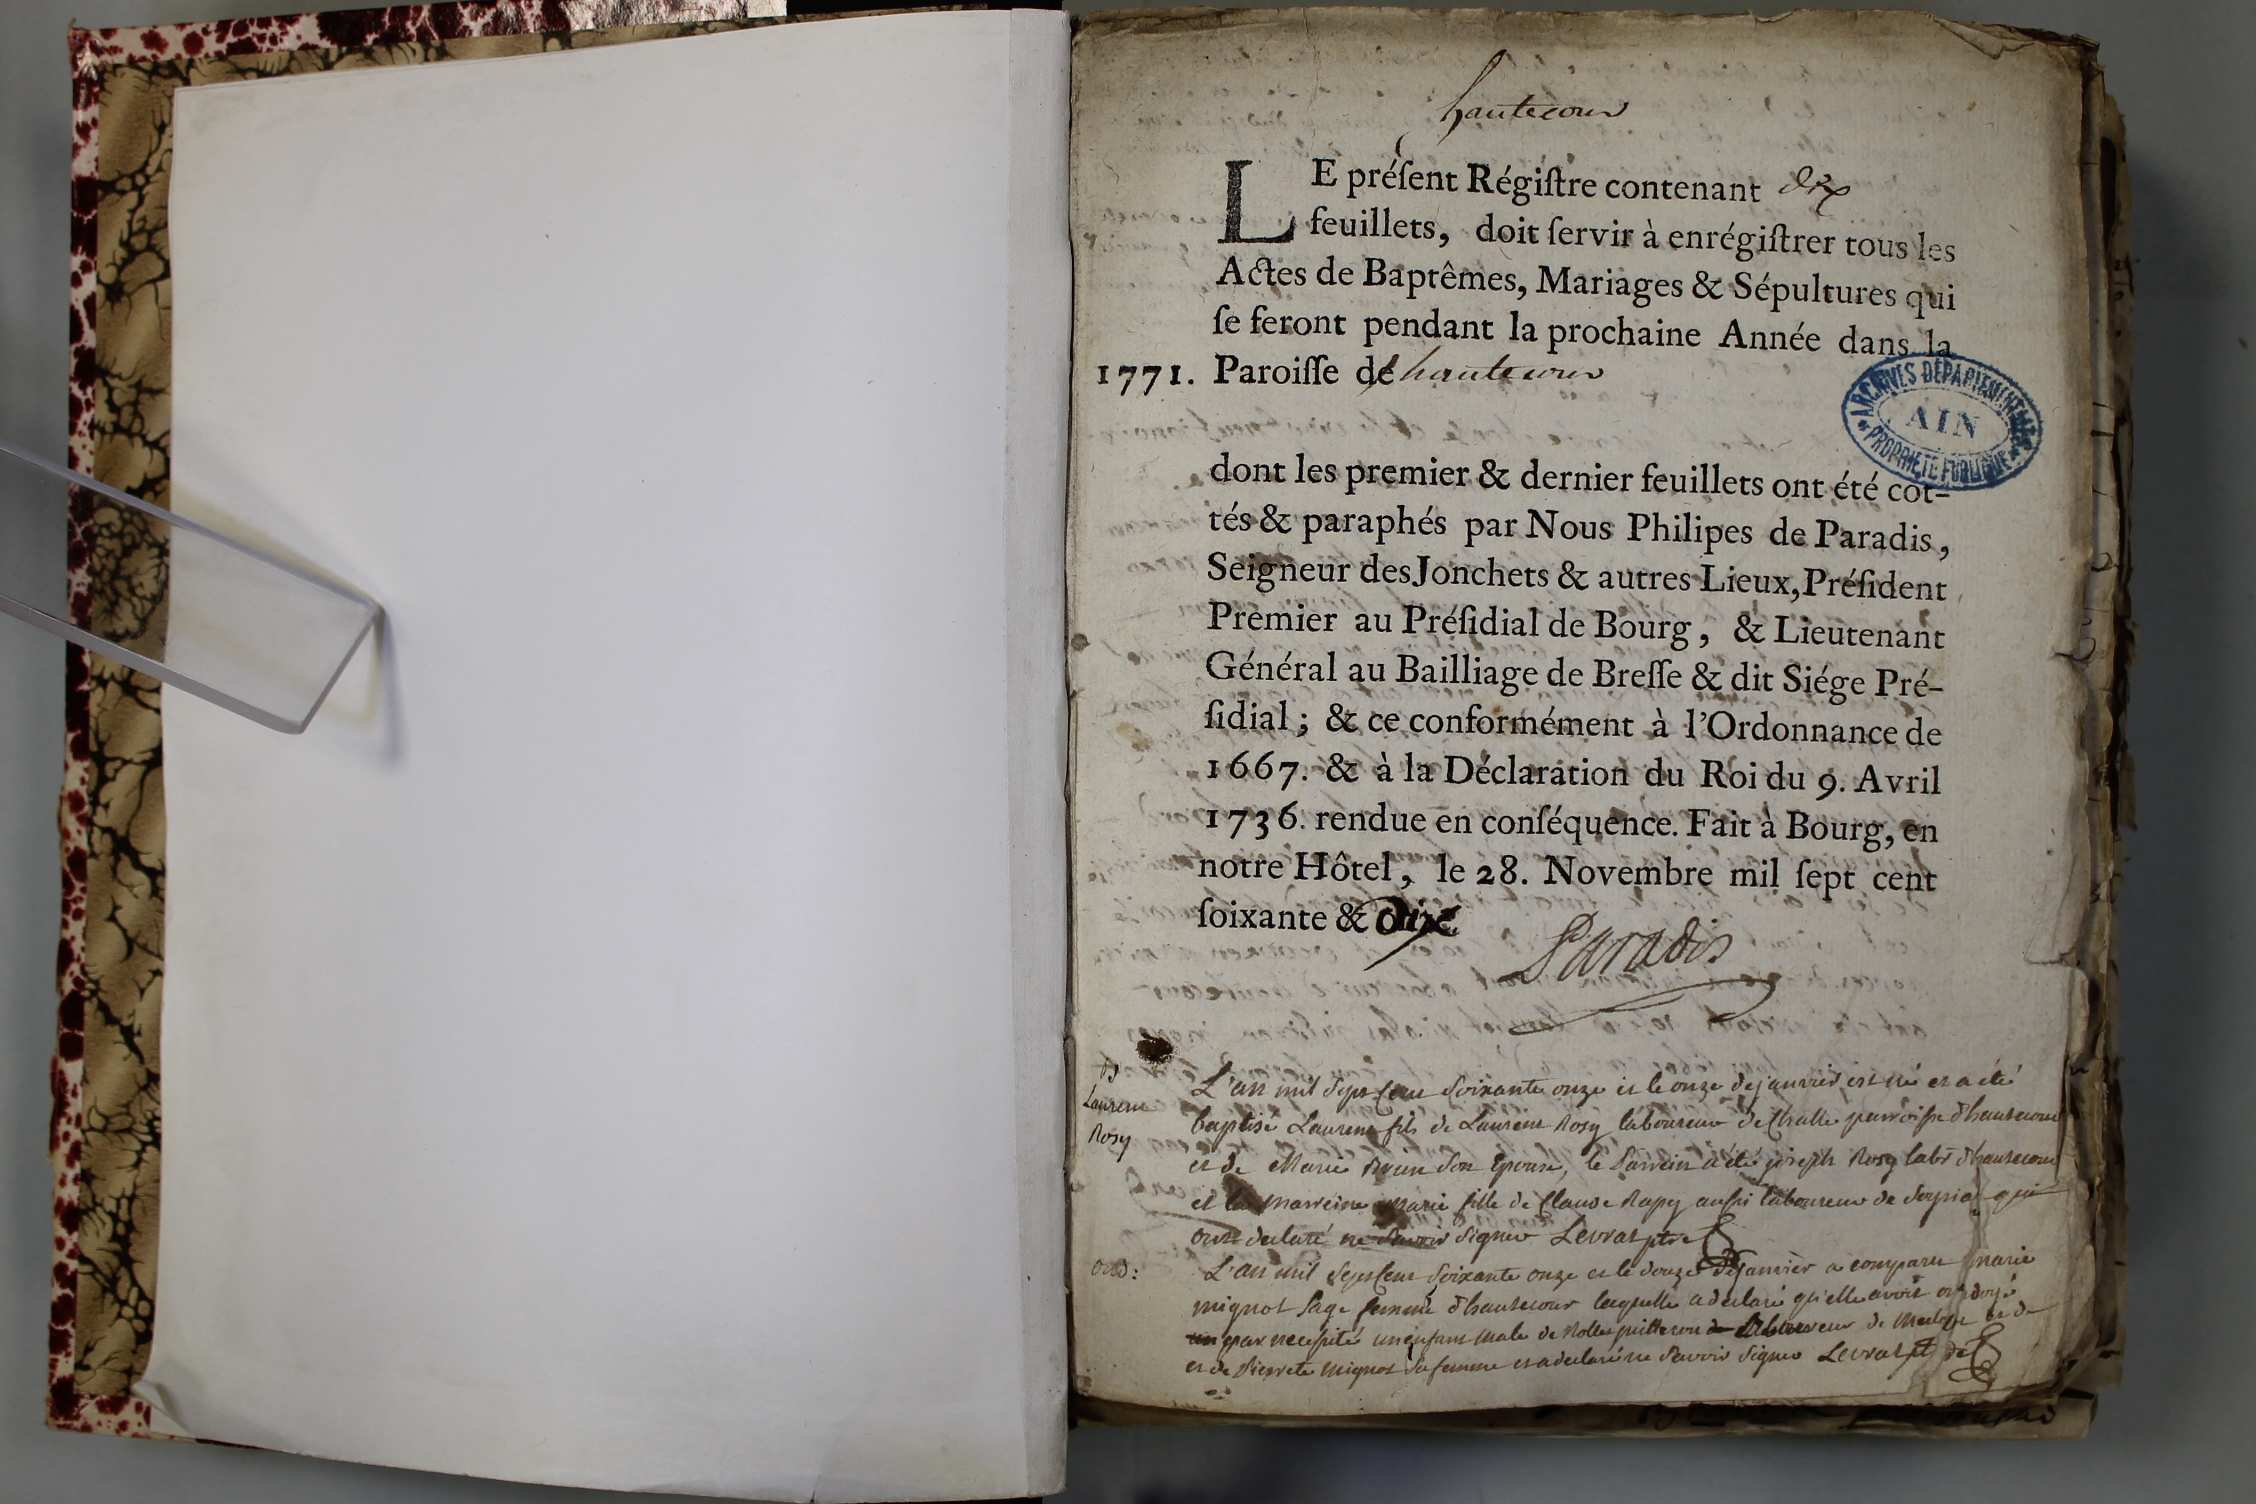 hautecour
LE préſent Régiſtre contenant dix
feuillets, doit ſervir à enrégiſtrer tous les
Actes de Baptêmes, Mariages & Sépultures qui
ſe feront pendant la prochaine Année dans la
1771. Paroiſſe de hautecour
ARCHIVES DÉPARTEMENTALES
AIN
PROPRIÉTÉ PUBLIQUE
dont les premier & dernier feuillets ont été cot-
tés & paraphés par Nous Philipes de Paradis,
Seigneur des Jonchets & autres Lieux, Préſident
Premier au Préſidial de Bourg, & Lieutenant
Général au Bailliage de Breſſe & dit Siége Pré-
ſidial ; & ce conformément à l'Ordonnance de
1667. & à la Déclaration du Roi du 9. Avril
1736. rendue en conſéquence. Fait à Bourg, en
notre Hôtel, le 28. Novembre mil ſept cent
ſoixante & dix
Paradis
Laurent
Rosy
L'an mil sept cent soixante onze et le onze de janvier est né et a été
baptisé Laurent fils de Laurent Rosy laboureur de Challe parroisse d'hautecour
et de Marie son épouse, le parrein a été joseph Rosy labr d'hautecour
et la marreine marie fille de Claude Rapy aussi laboureur de qui
ont declaré ne savoir signer Levrat ptre
ond:
L'an mil sept cent soixante onze et le douze de janvier a comparu marie
mignot sage femme d'hautecour laquelle a declaré qu'elle avoit ondoyé
par necessité un enfant male de laboureur de
et de Pierrete mignot sa femme et a declaré ne savoir signer Levrat